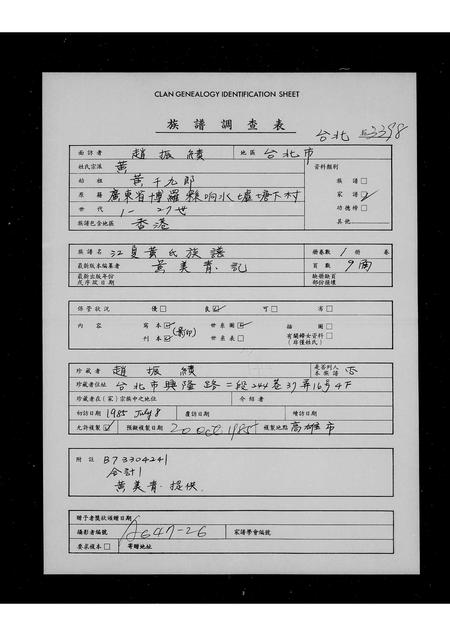 CLAN GENEALOGY IDENTIFICATION SHEET
族譜調查表
台北 3398
面訪者 趙振績 地區 台北市
姓氏宗派 黃 資料類別
始祖 黃千九郎 族譜 □
原籍 廣東省博羅縣响水墟塘下村 家譜 ☑
世代 1-27世 功德榜 □
族譜包含地區 香港 其他
族譜名 江夏黃氏族譜 冊卷數 1 冊 卷
最新版本編纂者 黃美青.記 頁數 9
最新出版年份 缺冊缺頁
或序跋日期 部份損壞
保管狀況 優□ 良☑ 可□ 劣□
內容 寫本☑ (影印) 世系圖☑ 插圖□
刊本☑ 世系表□ 有關婦女資料□
(非僅姓氏)
珍藏者 趙振績 是否列入本族譜 否
珍藏者住址 台北市興隆路二段244巷37弄16号4F
珍藏者在(家)宗族中之地位 介紹者
初訪日期 1985 July 8 覆訪日期 續訪日期
允許複製☑ 預擬複製日期 20 Oct 1985 複製地點 高雄市
附註 B97330424
合計1
黃美青.提供.
贈予者獎狀頒贈日期
攝影者編號 A647-26 家譜學會編號
要求複本□ 寄贈地址